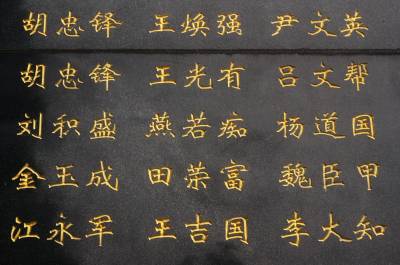 胡忠铎 王焕强 尹文英
胡忠锋 王光有 吕文帮
刘积盛 燕若痴 杨道国
金玉成 田荣富 魏臣甲
江永军 王吉国 李大知